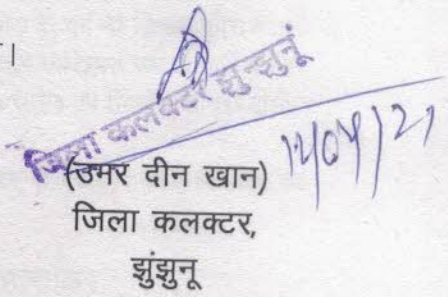 ।
जिला कलक्टर झुन्झुनूं
(उमर दीन खान)
जिला कलक्टर,
झुंझुनू